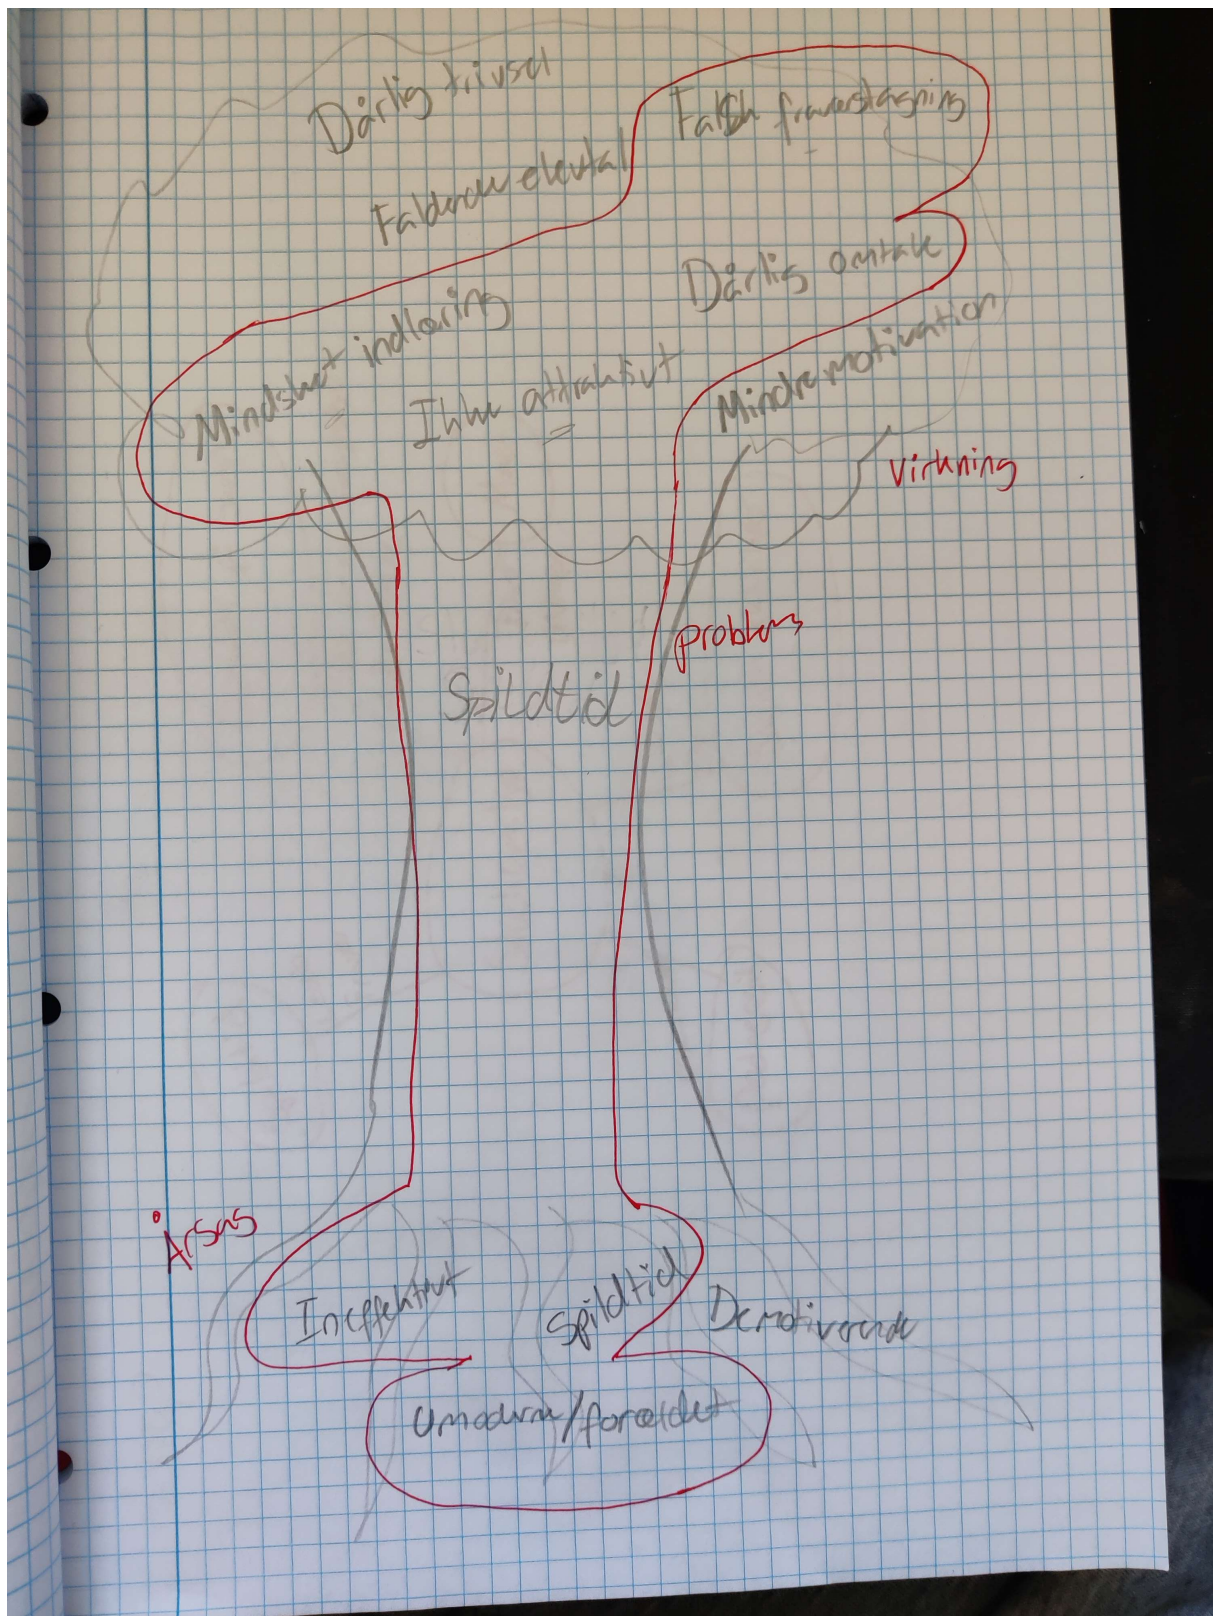 Dårlig trivsel
Falsk fraværstagning
Faldende elevtal
Dårlig omtale
Mindsket indlæring
Ikke attraktivt
Mindre motivation
Virkning
problem
Spildtid
Årsag
Ineffektivt
Spildtid
Demotiverende
Umoderne/forældet